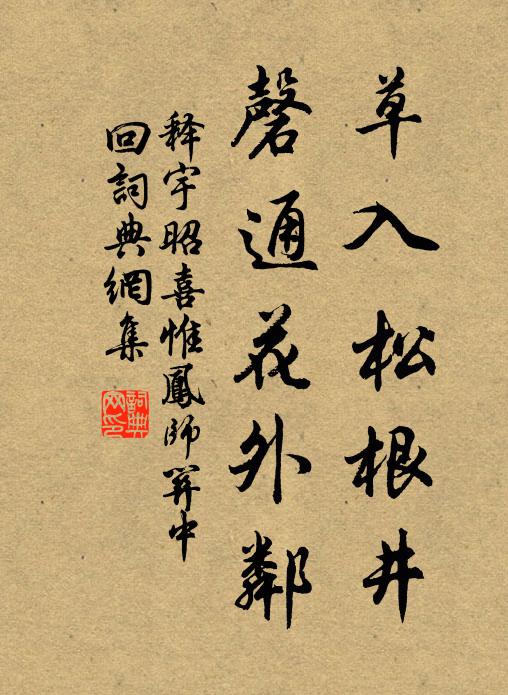 草入松根井
磬通花外鄰
释宇昭喜惟鳳師關中
回詞典網集
詞典
网印